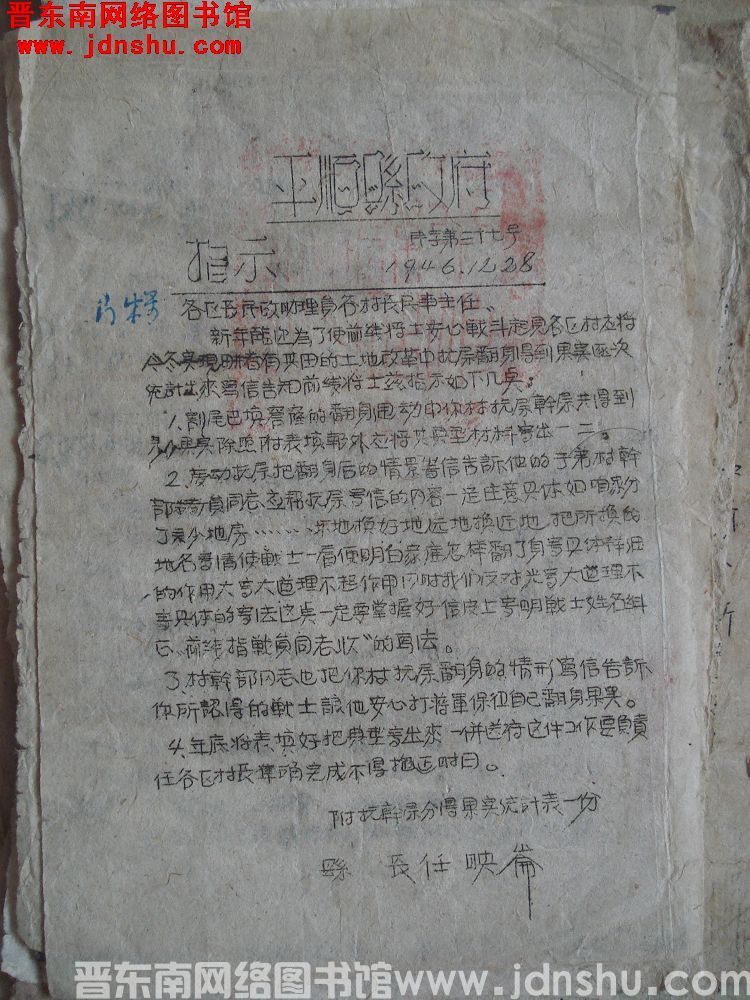 晋东南网络图书馆
www.jdnshu.com
平順縣政府
指示
民字第三十七号
1946.12.28
各区長民政助理員各村長民事主任、
新年臨近為了使前线将士安心戰斗起見各区村应将
今冬实現耕者有其田的土地改革中抗屬翻身得到果实逐次
統計出來寫信告知前线将士茲指示如下几点：
1.割尾巴填窟窿的翻身運动中你村抗屬幹屬共得到
多少果实除照附表填報外应将其典型材料寫出一二。
2.发动抗屬把翻身后的情景写信告訴他的子弟村幹
部教員同志应帮抗屬写信的内容一定注意具体如咱家分
了多少地房………坏地换好地远地换近地 把所换的
地名写清使戰士一看便明白家庭怎样翻了身
的作用大写大道理不起作用同时我们反对光写大道理不
写具体的写法这点一定要掌握好信皮上写明戰士姓名糾
正“前线指戰員同志收”的写法。
3.村幹部同志也把你村抗屬翻身的情形寫信告訴
你所認得的戰士讓他安心打蔣軍保衛自己翻身果实。
4.年底将表填好把典型寫出來一併送府这件工作要負責
任各区村長準确完成不得拖延时日。
附抗幹屬分得果实統計表一份
縣 長任映崙
晋东南网络图书馆www.jdnshu.com